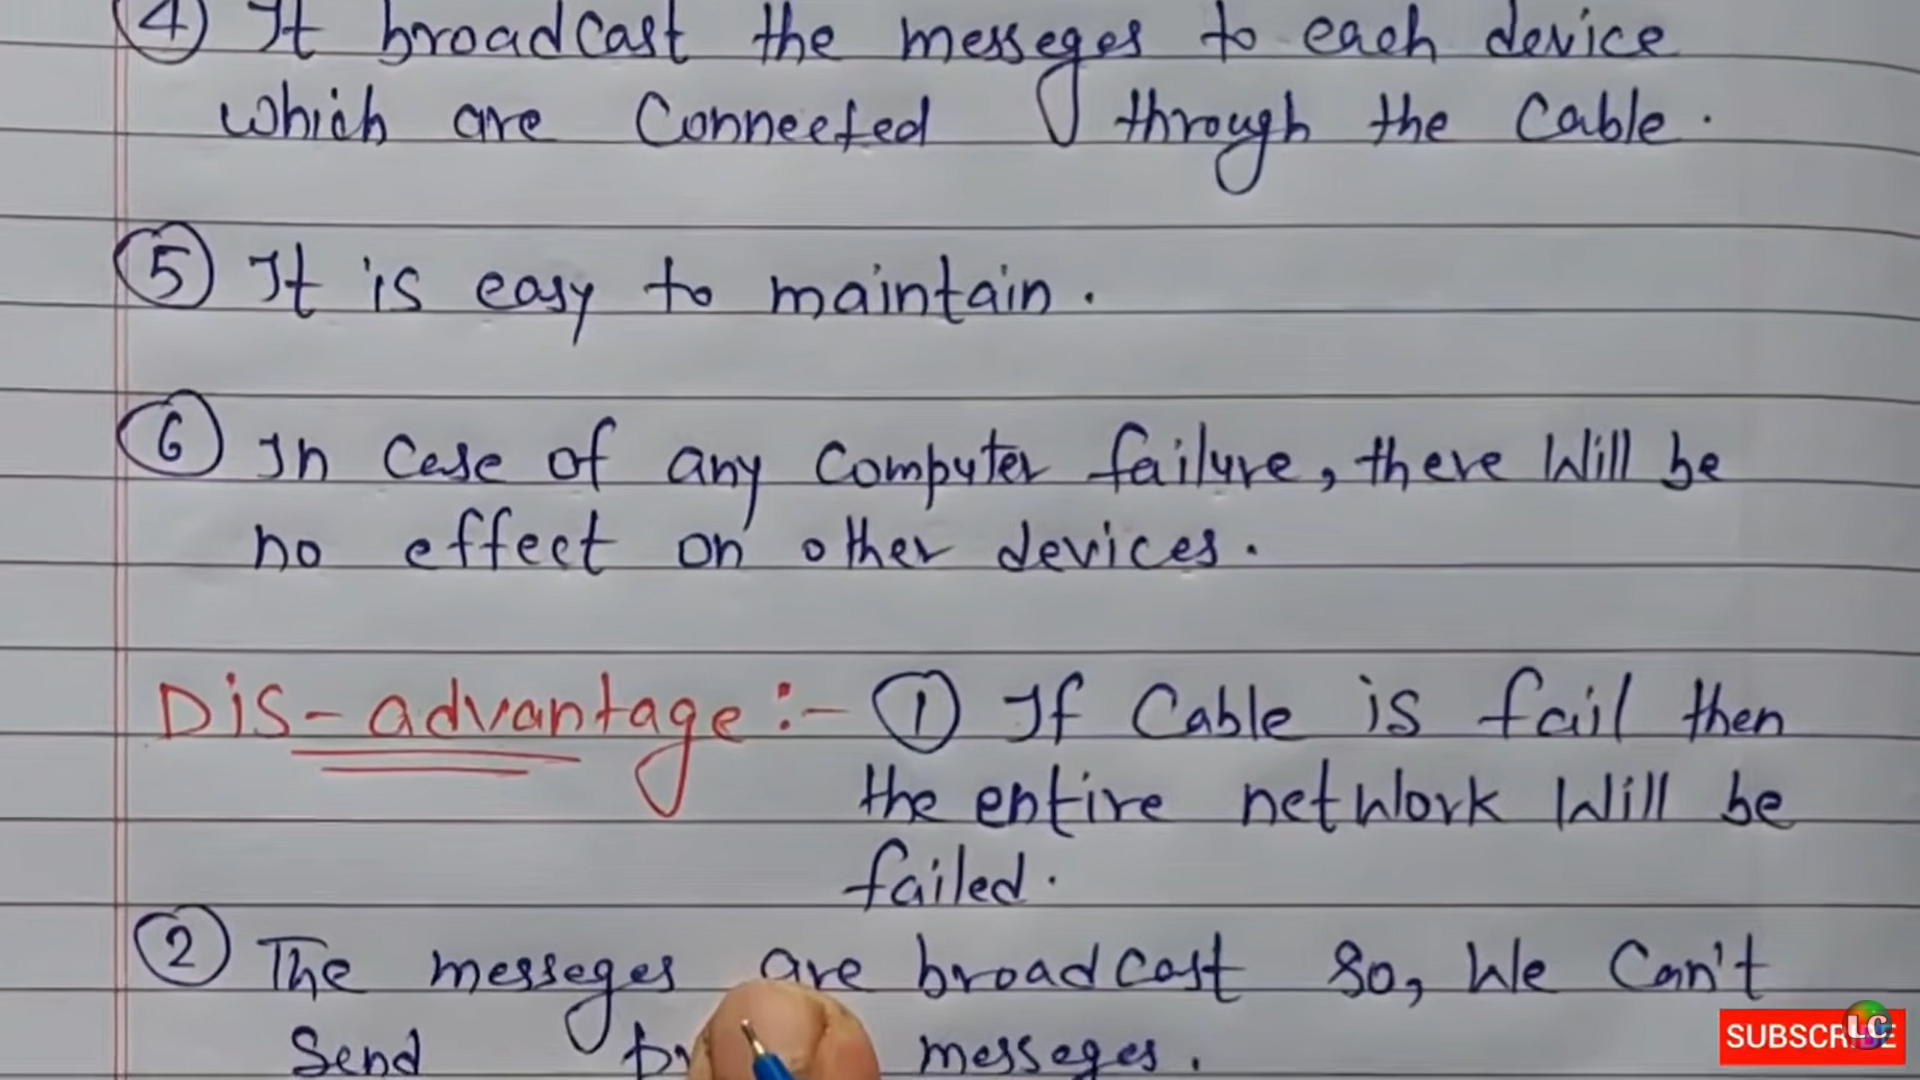 ④ It broadcast the messeges to each device
which are Connected through the Cable.
⑤ It is easy to maintain.
⑥ In Case of any Computer failure, there Will be
no effect on other devices.
Dis-advantage :- ① If Cable is fail then
the entire network Will be
failed.
② The messeges are broadcast so, We Can't
Send messeges.
SUBSCRIBE
LC